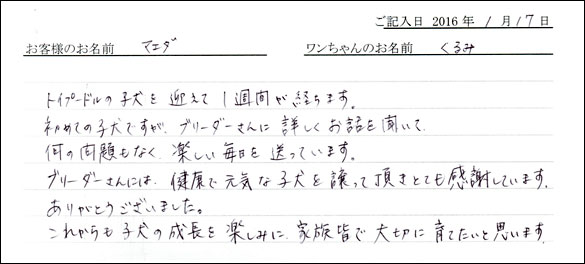 ご記入日 2016 年 1 月 17 日
お客様のお名前 マエダ ワンちゃんのお名前 くるみ
トイプードルの子犬を迎えて1週間が経ちます。
初めての子犬ですが、ブリーダーさんに詳しくお話を聞いて、
何の問題もなく、楽しい毎日を送っています。
ブリーダーさんには、健康で元気な子犬を譲って頂きとても感謝しています。
ありがとうございました。
これからも子犬の成長を楽しみに、家族皆で大切に育てたいと思います。